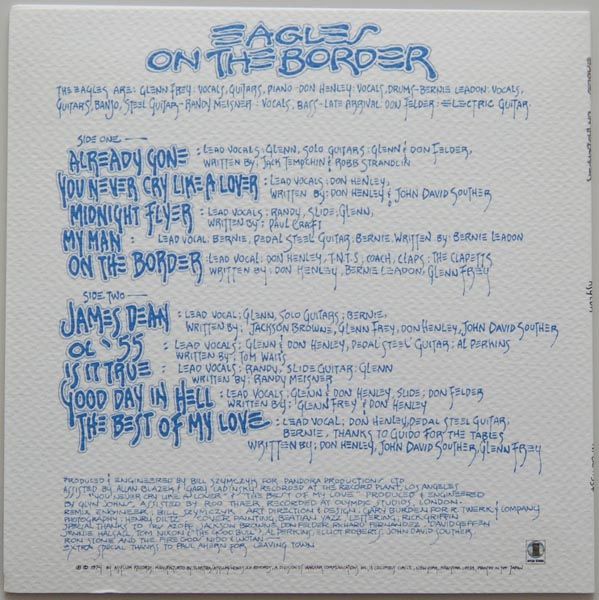 EAGLES
ON THE BORDER
THE EAGLES ARE: GLENN FREY: VOCALS, GUITARS, PIANO-DON HENLEY: VOCALS, DRUMS-BERNIE LEADON: VOCALS,
GUITARS, BANJO, STEEL GUITAR-RANDY MEISNER: VOCALS, BASS-LATE ARRIVAL: DON FELDER: ELECTRIC GUITAR.
SIDE ONE
ALREADY GONE : LEAD VOCALS: GLENN, SOLO GUITARS: GLENN & DON FELDER,
WRITTEN BY: JACK TEMPCHIN & ROBB STRANDLIN
YOU NEVER CRY LIKE A LOVER : LEAD VOCALS: DON HENLEY,
WRITTEN BY: DON HENLEY & JOHN DAVID SOUTHER
MIDNIGHT FLYER : LEAD VOCALS: RANDY, SLIDE: GLENN,
WRITTEN BY: PAUL CRAFT
MY MAN : LEAD VOCAL: BERNIE, PEDAL STEEL GUITAR: BERNIE. WRITTEN BY: BERNIE LEADON
ON THE BORDER : LEAD VOCAL: DON HENLEY, T.N.T.S, COACH, CLAPS: THE CLAPETTS
WRITTEN BY: DON HENLEY, BERNIE LEADON, GLENN FREY
SIDE TWO
JAMES DEAN : LEAD VOCAL: GLENN, SOLO GUITARS: BERNIE,
WRITTEN BY: JACKSON BROWNE, GLENN FREY, DON HENLEY, JOHN DAVID SOUTHER
OL' 55 : LEAD VOCALS: GLENN & DON HENLEY, PEDAL STEEL GUITAR: AL PERKINS
WRITTEN BY: TOM WAITS
IS IT TRUE : LEAD VOCALS: RANDY, SLIDE GUITAR: GLENN
WRITTEN BY: RANDY MEISNER
GOOD DAY IN HELL : LEAD VOCALS: GLENN & DON HENLEY, SLIDE: DON FELDER
WRITTEN BY: GLENN FREY & DON HENLEY
THE BEST OF MY LOVE : LEAD VOCAL: DON HENLEY, PEDAL STEEL GUITAR:
BERNIE, THANKS TO GUIDO FOR THE TABLES
WRITTEN BY: DON HENLEY, JOHN DAVID SOUTHER, GLENN FREY
PRODUCED & ENGINEERED BY BILL SZYMCZYK FOR PANDORA PRODUCTIONS LTD.
ASSISTED BY ALLAN BLAZEK & GARY LADINSKY RECORDED AT THE RECORD PLANT, LOS ANGELES
"YOU NEVER CRY LIKE A LOVER" & "THE BEST OF MY LOVE" PRODUCED & ENGINEERED
BY GLYN JOHNS, ASSISTED BY ROD THAER RECORDED AT OLYMPIC STUDIOS, LONDON.
REMIX ENGINEER: BILL SZYMCZYK ART DIRECTION & DESIGN: GARY BURDEN FOR R. TWERK & COMPANY
PHOTOGRAPHY: HENRY DILTZ COVER PAINTING: BEATIEN YAZZ LETTERING: RICK GRIFFIN
SPECIAL THANKS TO JACKSON BROWNE, DON FELDER, RICHARD FERNANDEZ, DAVID GEFFEN
TOM NIXON & "THE GOOD BULL", AL PERKINS, ELLIOT ROBERTS, JOHN DAVID SOUTHER,
RON STONE AND THE FIRE GOONY
EXTRA SPECIAL THANKS TO PAUL AHERN FOR LEAVING TOWN
© 1974 BY ASYLUM RECORDS PRINTED IN JAPAN